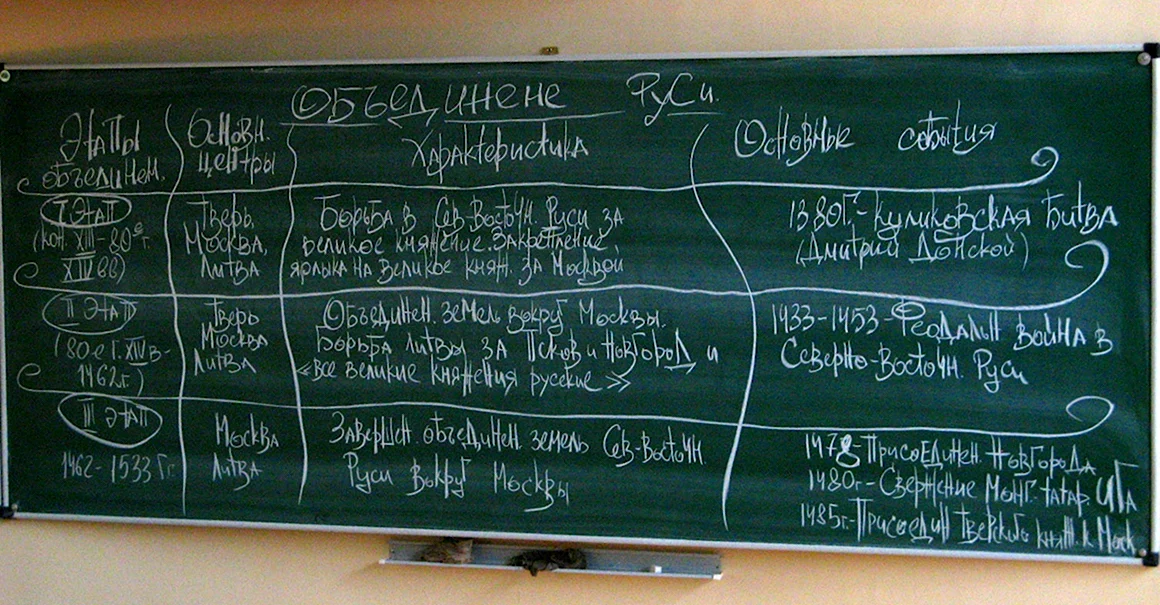 ОБЪЕДИНЕНЕ РУСИ.
ЭТАПЫ
ОБЪЕДИНЕН.
ОСНОВН.
ЦЕНТРЫ
ХАРАКТЕРИСТИКА
ОСНОВНЫЕ СОБЫТИЯ
I ЭТАП
(КОН. XIII-80е г.
XIV вв)
ТВЕРЬ,
МОСКВА,
ЛИТВА
БОРЬБА В СЕВ-ВОСТОЧН. РУСИ ЗА
ВЕЛИКОЕ КНЯЖЕНИЕ. ЗАКРЕПЛЕНИЕ
ЯРЛЫКА НА ВЕЛИКОЕ КНЯЖ. ЗА МОСКВОЙ
1380Г.- КУЛИКОВСКАЯ БИТВА
(ДМИТРИЙ ДОНСКОЙ)
II ЭТАП
(80е Г. XIV в-
1462г.)
ТВЕРЬ
МОСКВА
ЛИТВА
ОБЪЕДИНЕН. ЗЕМЕЛЬ ВОКРУГ МОСКВЫ.
БОРЬБА ЛИТВЫ ЗА ПСКОВ И НОВГОРОД И
«ВСЕ ВЕЛИКИЕ КНЯЖЕНИЯ РУССКИЕ»
1433-1453-ФЕОДАЛЬН ВОЙНА В
СЕВЕРНО-ВОСТОЧН. РУСИ
III ЭТАП
1462-1533 Гг
МОСКВА
ЛИТВА
ЗАВЕРШЕН. ОБЪЕДИНЕН. ЗЕМЕЛЬ СЕВ-ВОСТОЧН.
РУСИ ВОКРУГ МОСКВЫ
1478-ПРИСОЕДИНЕН. НОВГОРОДА
1480г- СВЕРЖЕНИЕ МОНГ-ТАТАР. ИГА
1485г.-ПРИСОЕДИН ТВЕРСКОГО КНЯЖ. К МОСК